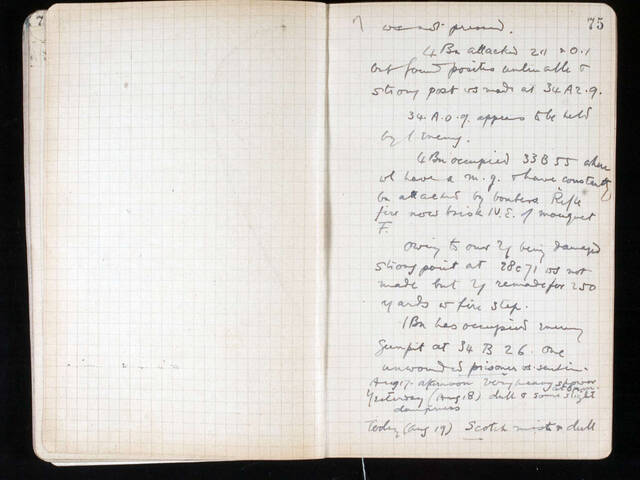 7
75
was not pressed.
4 Bn attacked 29 & 0.1
but found position untenable &
strong post ws made at 34 A 2.9.
34.A.0.9. appears to be held
by enemy.
4 Bn occupied 33 B 55 where
we have a m.g. & have constantly
bn attacked by bombers. Rifle
fire now brisk N.E. of mouquet
F.
Owing to our being damaged
strong point at 28c71 ws not
made but remade for 250
yards w fire step.
1 Bn has occupied enemy
gunpit at 34 B 26. One
unwounded prisoner ws sent in.
Aug 17. afternoon very heavy shower
at
Yesterday (Aug 18) dull & some slight
dampness
Today (Aug 19) Scotch mist & dull